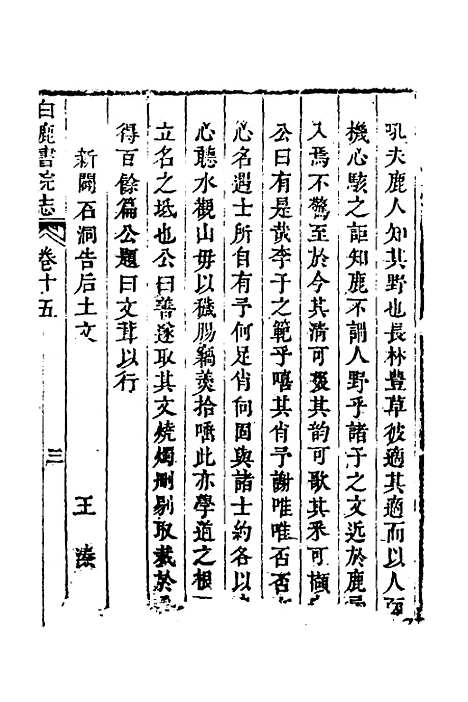 吼夫鹿人知其野也長林豐草彼適其適而以人
機心駭之詎知鹿不謂人野乎諸子之文近於鹿
入焉不驚至於今其清可愛其韵可歌其釆可擷
公曰有是哉李子之範乎嘻其肖予謝唯唯否否
心名遇士所自有予何足肖向固與諸士約各以
心聽水觀山毋以穢腸竊羨拾唾此亦學道之根
立名之坻也公曰善遂取其文燒燭刪剔取載於
得百餘篇公題曰文茸以行
新闢石洞告后土文
王溱
白鹿書院志
卷十五
三